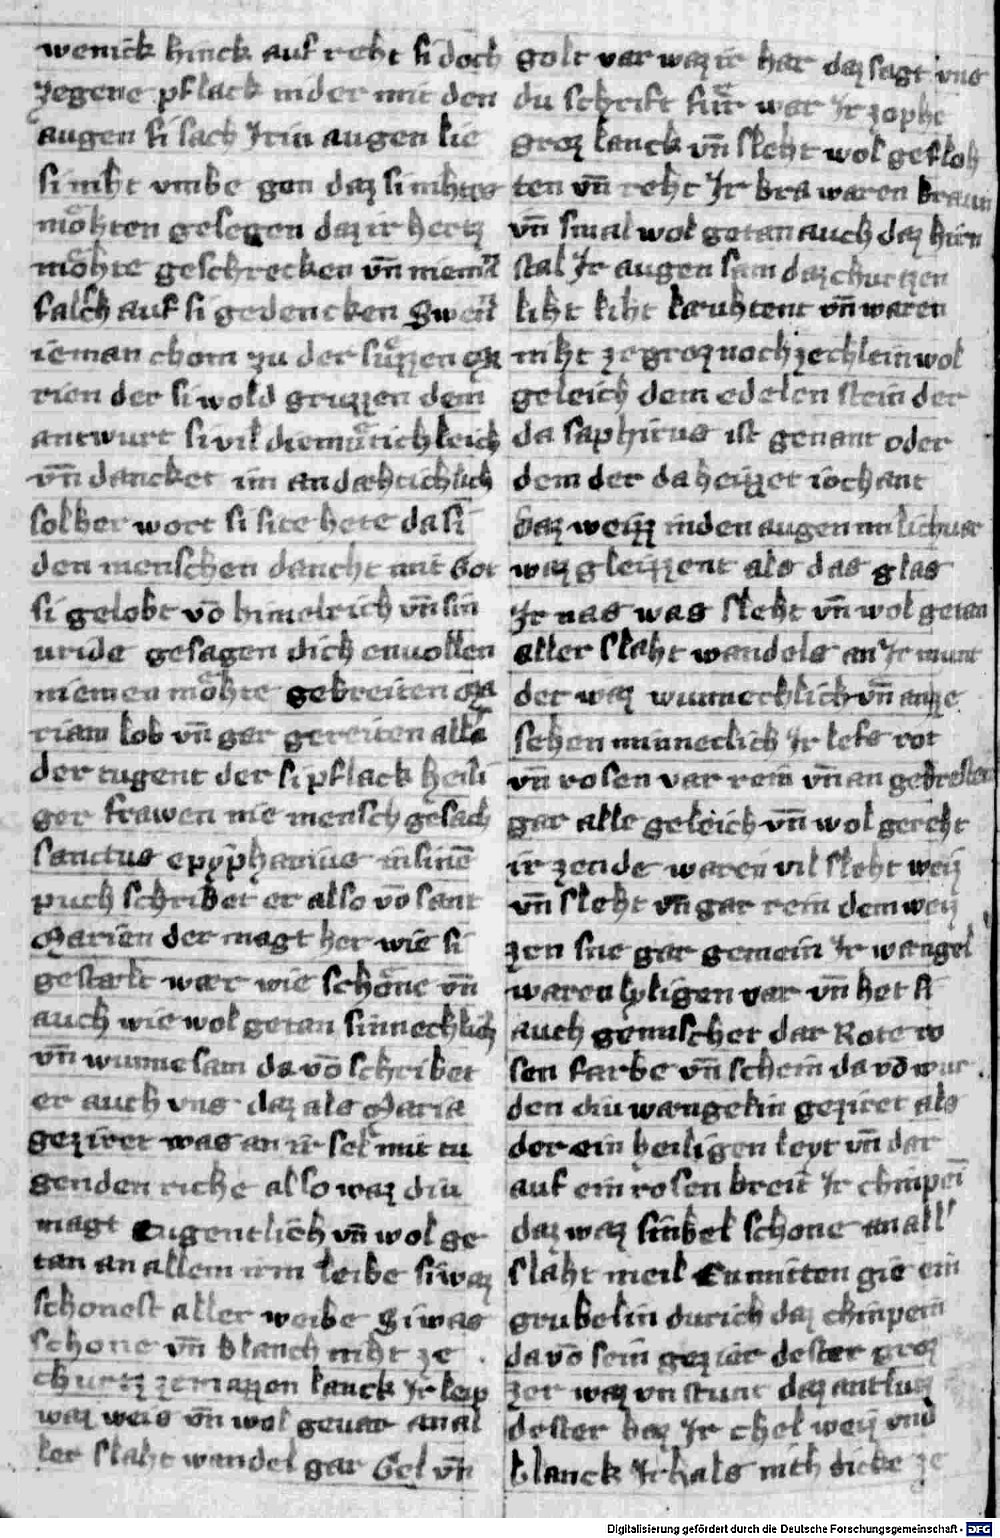 wenick hinck auf reht si doch
zegene pflack nider mit den
augen si sach Irin augen lie
si niht vmbe gen daz si nihtes
moͤhten gesegen daz ir hertz
moͤhte geschrecken vn̄ niemā
falsch auf si gedencken Swen̄
ieman chom zu der suͤzzen Ma
rien der si wold gruzzen dem
antwurt si vil diemuͤtichleich
vn̄ dancket im andæhtichlich
solher wort si site hete da si
den menschen daucht mit Got
si gelobt vō himelrich vn̄ sin
uride gesagen dich envollen
niemen moͤhte gebreiten Ma
riam lob vn̄ gar gereiten alle
der tugent der si pflack heili
ger frawen nie mensch gesach
sanctus epyphanius in sinē
puch schribet er also vō sant
Marien der magt her wie si
gestalt wær wie schoͤne vn̄
auch wie wol getan sinnechlich
vn̄ wunnesam da vō schribet
er auch vns daz als Maria
geziret was an ir sel mit tu
genden riche also waz diu
magt tugentlich vn̄ wol ge
tan an allem irm leibe si waz
schonest aller weibe Si was
schone vn̄ blanch niht ze
churtz zemazzen lanck Ir leip
waz weis vn̄ wol geuar an al
ler slaht wandel gar Gel vn̄
golt var waz ir har daz sagt vns
du schrift fuͤr war Ir zophe
groz lanck vn̄ sleht wol gefloh
ten vn̄ reht Ir bra waren braun
vn̄ smal wol getan auch daz hirn
stal Ir augen sam daz churtzen
liht liht leuhtent vn̄ waren
niht ze groz noch ze chlein wol
geleich dem edelen stein der
da saphirus ist genant oder
dem der da heizzet iochant
Daz weizz in den augen
waz gleizzent als das glas
Ir nas was sleht vn̄ wol getan
aller slaht wandels an Ir munt
der waz wunnechlich vn̄ anze
sehen minneclich Ir lefs rot
vn̄ rosen var rein vn̄ an gebresten
gar alle geleich vn̄ wol gereht
ir zende waren vil sleht weiz
vn̄ sleht vn̄ gar rein dem weiz
zen sne gar gemein Ir wangel
waren lyligen var vn̄ het si
auch gemischet dar Rote ro
sen farbe vn̄ schein da vō wur
den diu wangelin geziret als
der ein heiligen leyt vn̄ dar
auf ein rosen breit Ir chinpein
daz waz sinbel schone an all
slaht meil Enmitten gie ein
grubelin durich daz chinpein
da vō sein gezier dester groz
zer waz vn stunt daz antlutz
dester baz Ir chel weiz vnd
blanck Ir hals nich dicke ze
Digitalisierung gefördert durch die Deutsche Forschungsgemeinschaft - DFG